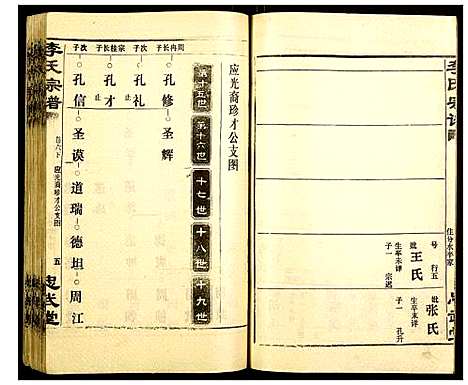 李氏宗谱
住分水辛家
号 行五
妣 王氏
生卒未详
子一 宗迟
妣 张氏
生卒未详
子一 孔升
应光裔珍才公支图
第十五世
第十六世
十七世
十八世
十九世
周冉长子
孔修
圣辉
次子
孔礼
止
宗桂长子
孔才
止
次子
孔信
圣谟
道瑞
德坦
周江
李氏宗谱
卷六下
应光裔珍才公支图
五
忠武堂